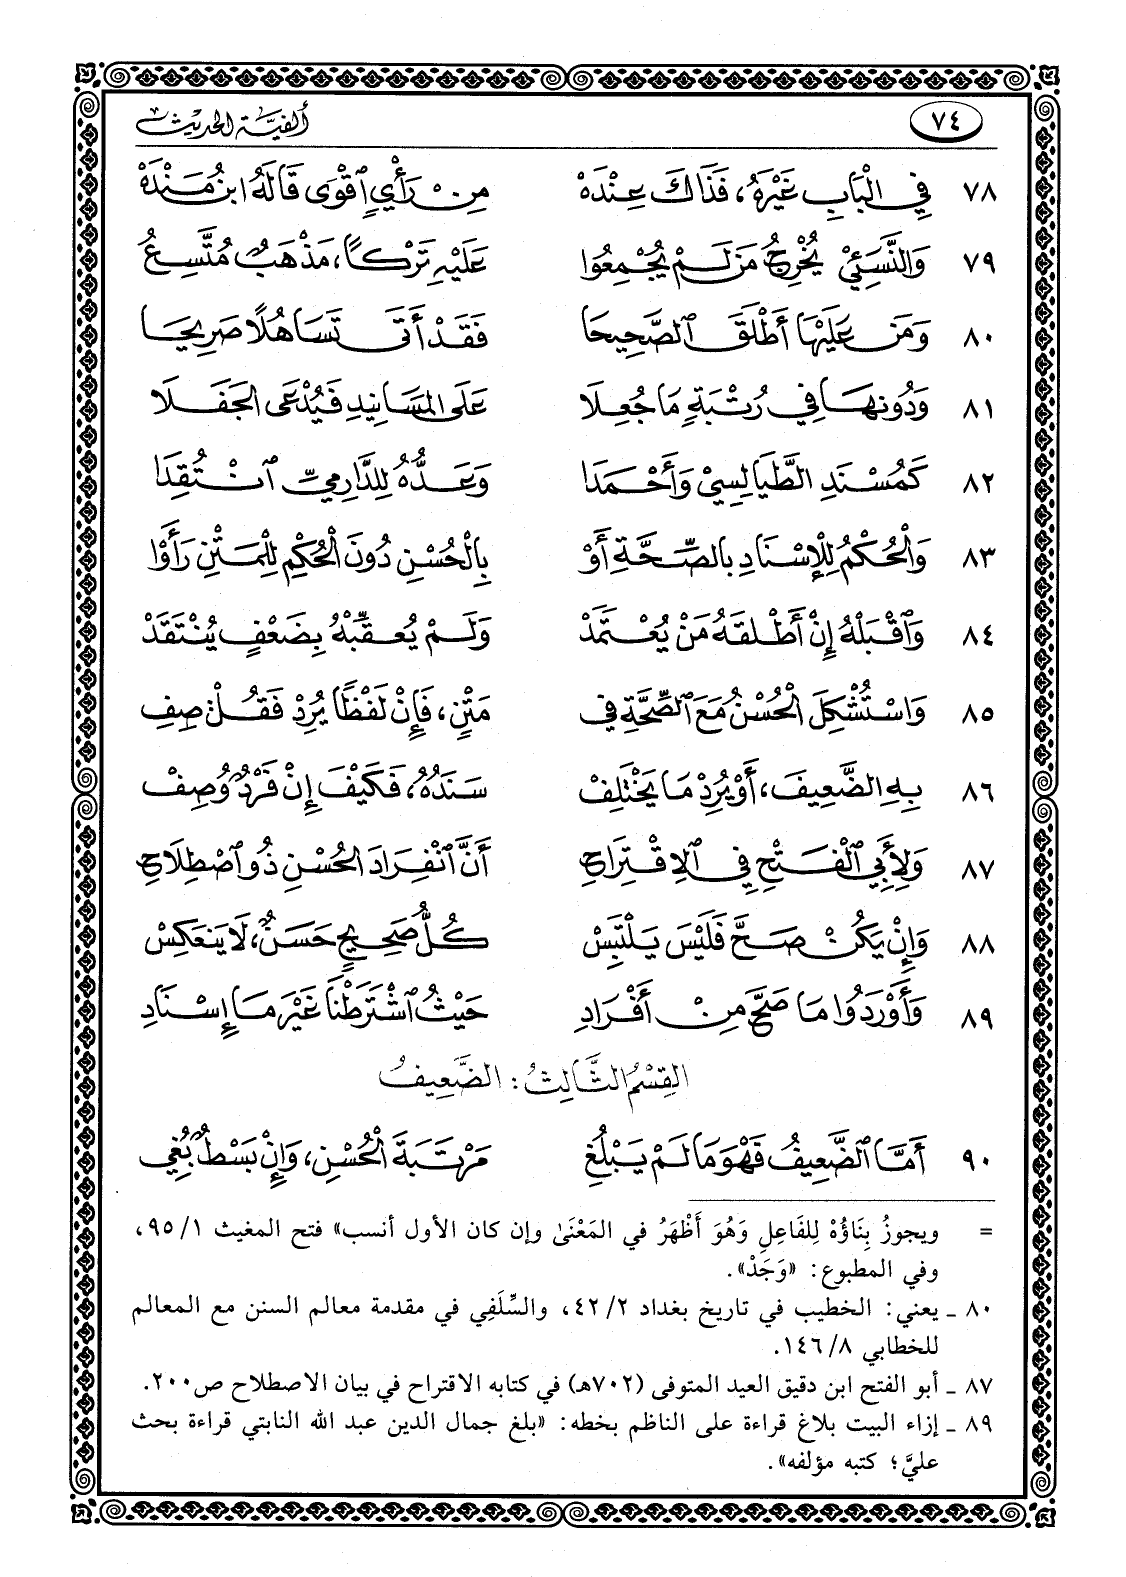 ٧٤ ألفية الحديث
٧٨ فِي الْبَابِ غَيْرَهُ، فَذَاكَ عِنْدَهْ مِنْ رَأْيٍ ٱقْوَى قَالَهُ ابْنُ مَنْدَهْ
٧٩ وَالنَّسَئِيْ يُخْرِجُ مَنْ لَمْ يُجْمِعُوا عَلَيْهِ تَرْكاً، مَذْهَبٌ مُتَّسِعُ
٨٠ وَمَنْ عَلَيْهَا أَطْلَقَ ٱلصَّحِيحَا فَقَدْ أَتَى تَسَاهُلًا صَرِيحَا
٨١ وَدُونَهَا فِي رُتْبَةٍ مَا جُعِلَا عَلَى المَسَانِيدِ فَيُدْعَى الجَفَلَا
٨٢ كَمُسْنَدِ الطَّيَالِسِيْ وَأَحْمَدَا وَعَدُّهُ لِلدَّارِمِيِّ ٱنْتُقِدَا
٨٣ وَالْحُكْمُ لِلْإِسْنَادِ بِالصِّحَّةِ أَوْ بِالْحُسْنِ دُونَ الْحُكْمِ لِلْمَتْنِ رَأَوْا
٨٤ وَٱقْبَلْهُ إِنْ أَطْلَقَهُ مَنْ يُعْتَمَدْ وَلَمْ يُعَقِّبْهُ بِضَعْفٍ يُنْتَقَدْ
٨٥ وَاسْتُشْكِلَ الْحُسْنُ مَعَ ٱلصِّحَّةِ فِي مَتْنٍ، فَإِنْ لَفْظًا يُرِدْ فَقُلْ صِفِ
٨٦ بِهِ الضَّعِيفَ، أَوْ يُرِدْ مَا يَخْتَلِفْ سَنَدُهُ، فَكَيْفَ إِنْ فَرْدٌ وُصِفْ
٨٧ وَلِأَبِي ٱلْفَتْحِ فِي ٱلِاقْتِرَاحِ أَنَّ ٱنْفِرَادَ الحُسْنِ ذُو ٱصْطِلَاحِ
٨٨ وَإِنْ يَكُنْ صَحَّ فَلَيْسَ يَلْتَبِسْ كُلُّ صَحِيحٍ حَسَنٌ، لَا يَنْعَكِسْ
٨٩ وَأَوْرَدُوا مَا صَحَّ مِنْ أَفْرَادِ حَيْثُ ٱشْتَرَطْنَا غَيْرَ مَا إِسْنَادِ
القِسْمُ الثَّالِثُ: الضَّعِيفُ
٩٠ أَمَّا الضَّعِيفُ فَهْوَ مَا لَمْ يَبْلُغِ مَرْتَبَةَ الْحُسْنِ، وَإِنْ بَسْطٌ بُغِي
= ويجوزُ بِنَاؤُهُ لِلفَاعِلِ وَهُوَ أَظْهَرُ في المَعْنَىٰ وإن كان الأول أنسب» فتح المغيث ٩٥/١،
وفي المطبوع: «وَجَدْ».
٨٠ ـ يعني: الخطيب في تاريخ بغداد ٤٢/٢، والسِّلَفِي في مقدمة معالم السنن مع المعالم
للخطابي ١٤٦/٨.
٨٧ ـ أبو الفتح ابن دقيق العيد المتوفى (٧٠٢هـ) في كتابه الاقتراح في بيان الاصطلاح ص٢٠٠.
٨٩ ـ إزاء البيت بلاغ قراءة على الناظم بخطه: «بلغ جمال الدين عبد الله النابتي قراءة بحث
عليَّ؛ كتبه مؤلفه».